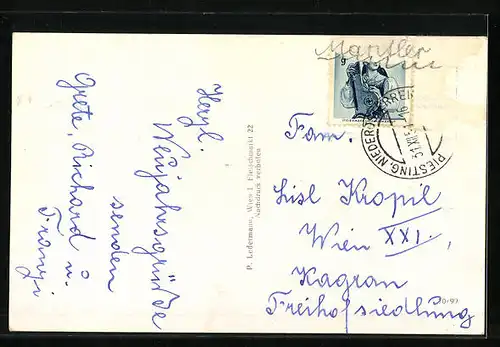 Herzl.
Neujahrsgrüße
senden
Grete, Richard u.
Franzi
P. Ledermann, Wien I, Fleischmarkt 22
Nachdruck verboten
Mantler
PIESTING-NIEDERÖSTERREICH
Fam.
Lisl Kropil
Wien XXI,
Kagran
Freihofsiedlung